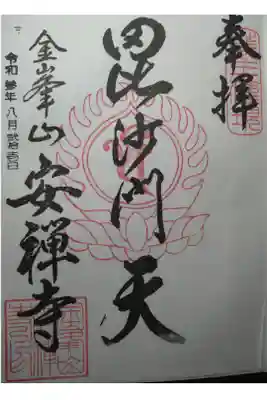 奉拝
毘沙門天
金峯山 安禅寺
令和参年八月弐拾壱日